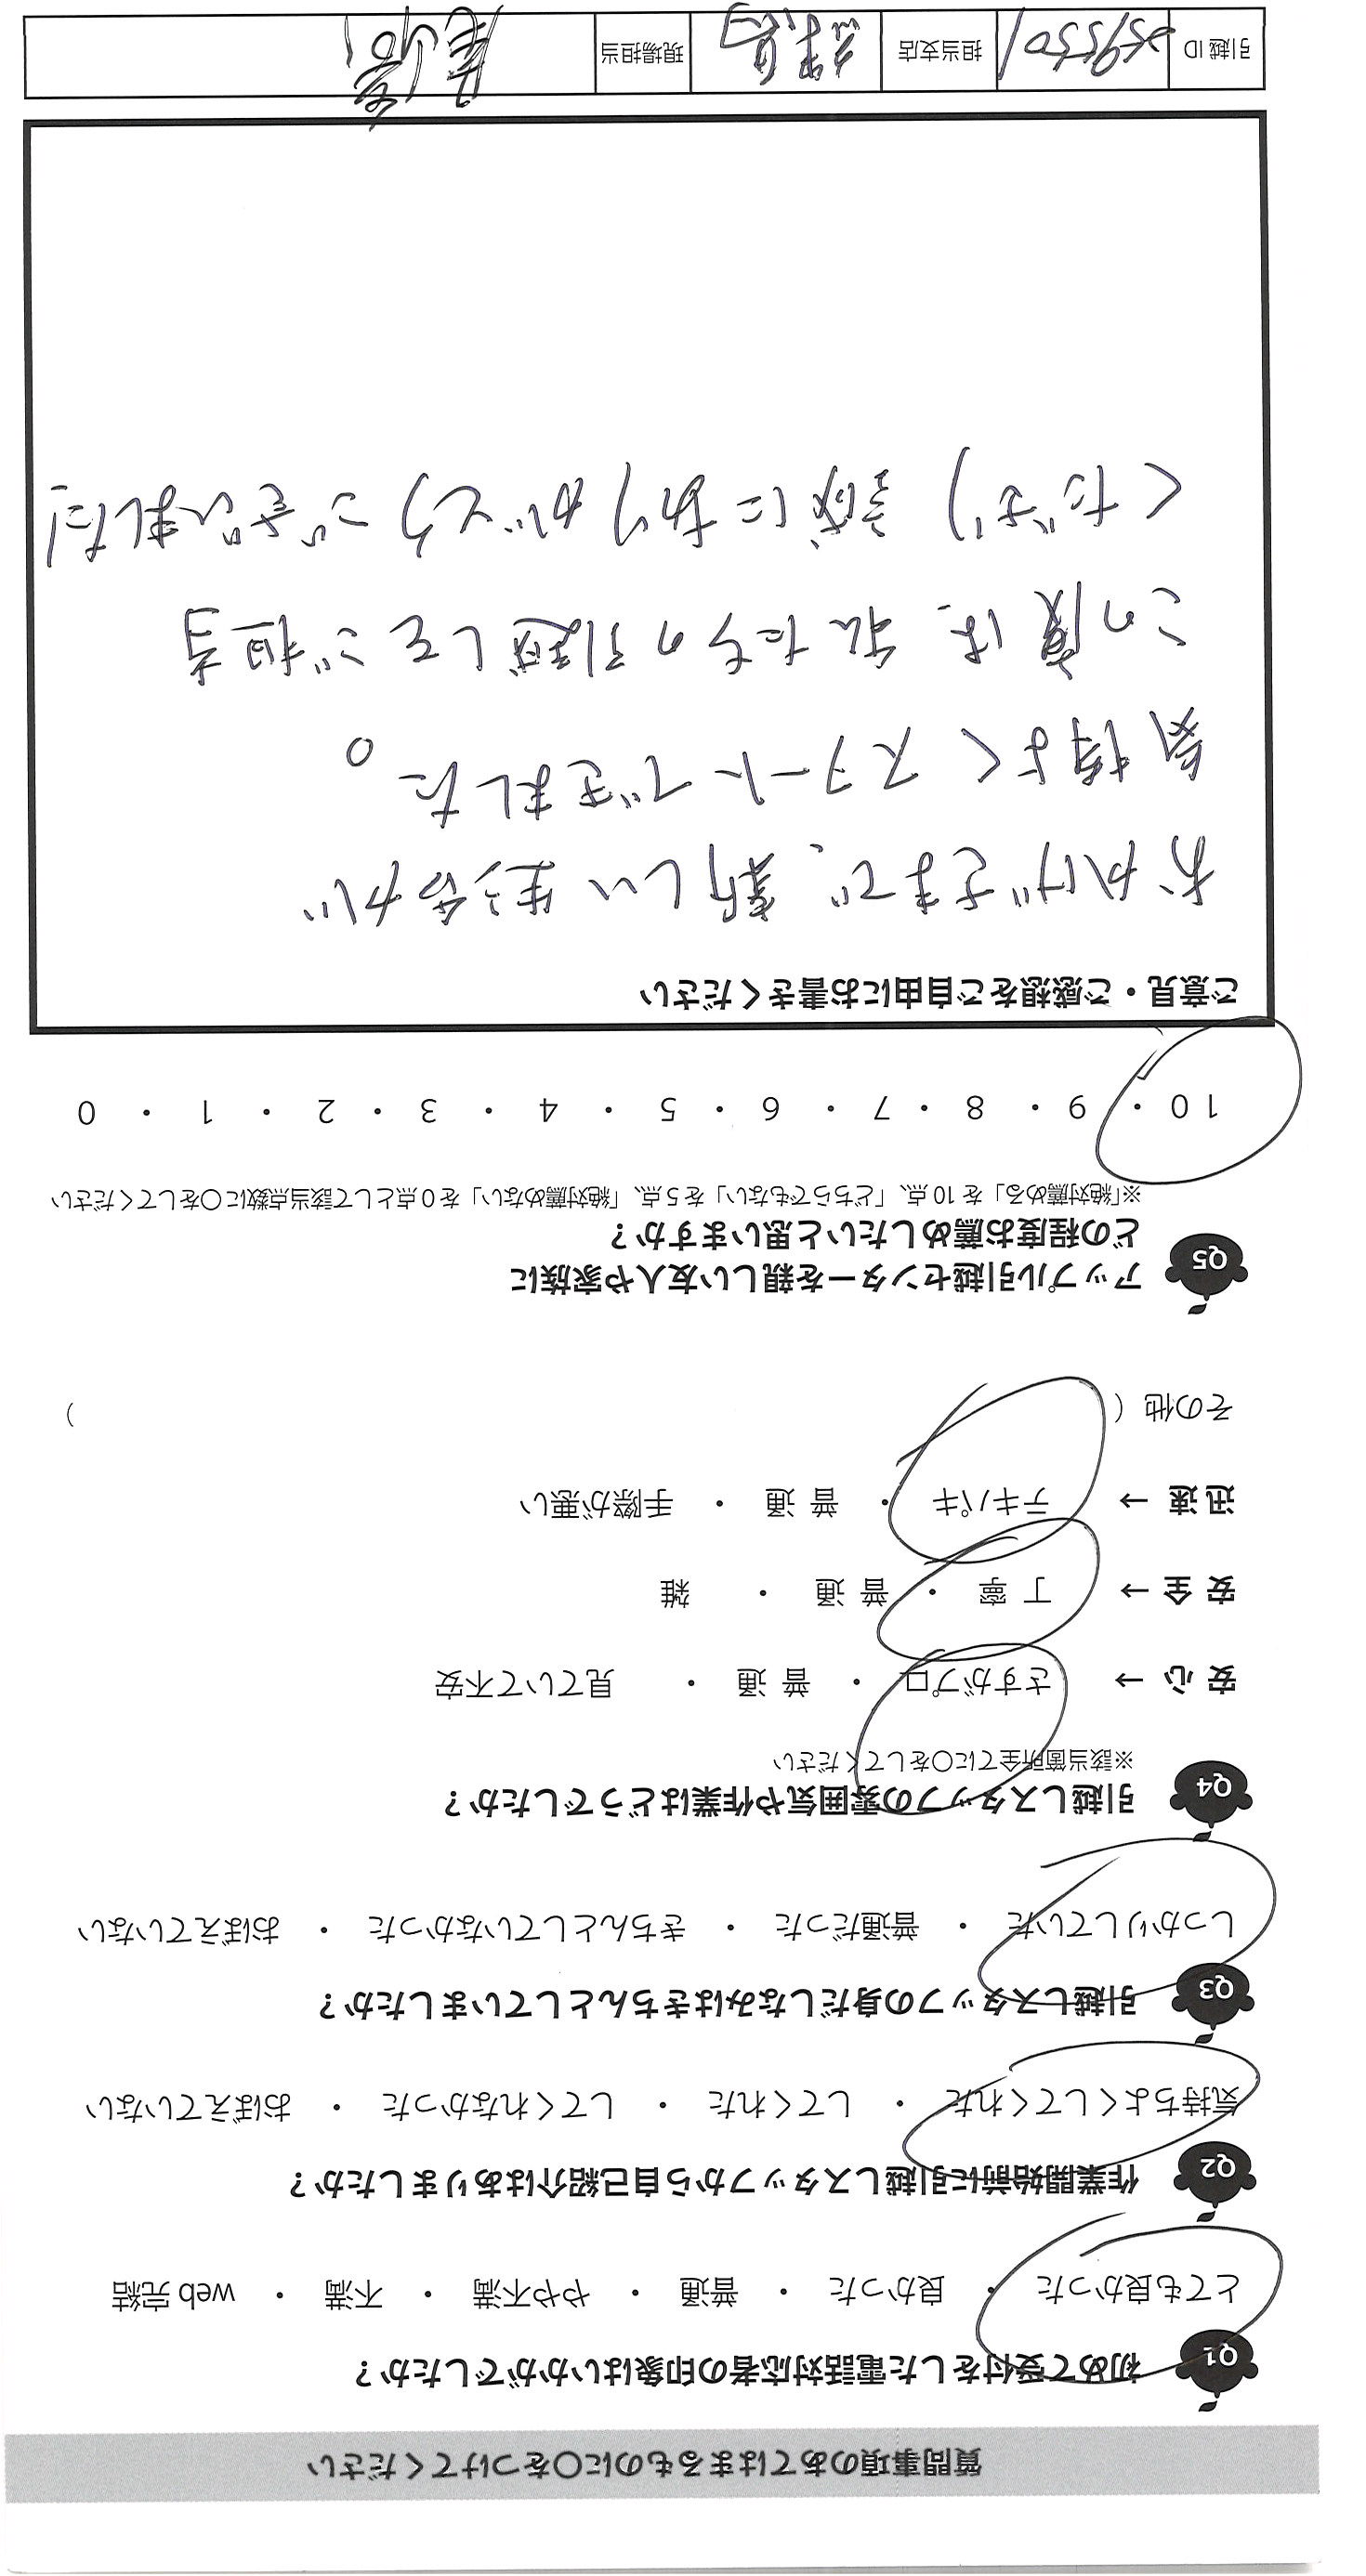 質問事項のあてはまるものに〇をつけてください
Q1 初めて受付をした電話対応者の印象はいかがでしたか？
とても良かった ・ 良かった ・ 普通 ・ やや不満 ・ 不満 ・ web 完結
Q2 作業開始前に引越しスタッフから自己紹介はありましたか？
気持ちよくしてくれた ・ してくれた ・ してくれなかった ・ おぼえていない
Q3 引越しスタッフの身だしなみはきちんとしていましたか？
しっかりしていた ・ 普通だった ・ きちんとしていなかった ・ おぼえていない
Q4 引越しスタッフの雰囲気や作業はどうでしたか？
※該当箇所全てに〇をしてください
安 心 → さすがプロ ・ 普 通 ・ 見ていて不安
安 全 → 丁 寧 ・ 普 通 ・ 雑
迅 速 → テキパキ ・ 普 通 ・ 手際が悪い
その他 ( )
Q5 アップル引越センターを親しい友人や家族に
どの程度お薦めしたいと思いますか？
※「絶対薦める」を 10 点、「どちらでもない」を 5 点、「絶対薦めない」を 0 点として該当点数に〇をしてください
10 ・ 9 ・ 8 ・ 7 ・ 6 ・ 5 ・ 4 ・ 3 ・ 2 ・ 1 ・ 0
ご意見・ご感想をご自由にお書きください
おかげさまで、新しい生活が
気持よくスタートできました。
この度は、私たちの引越しをご担当
くださり 誠にありがとうございました！
引越 ID 担当支店 現場担当